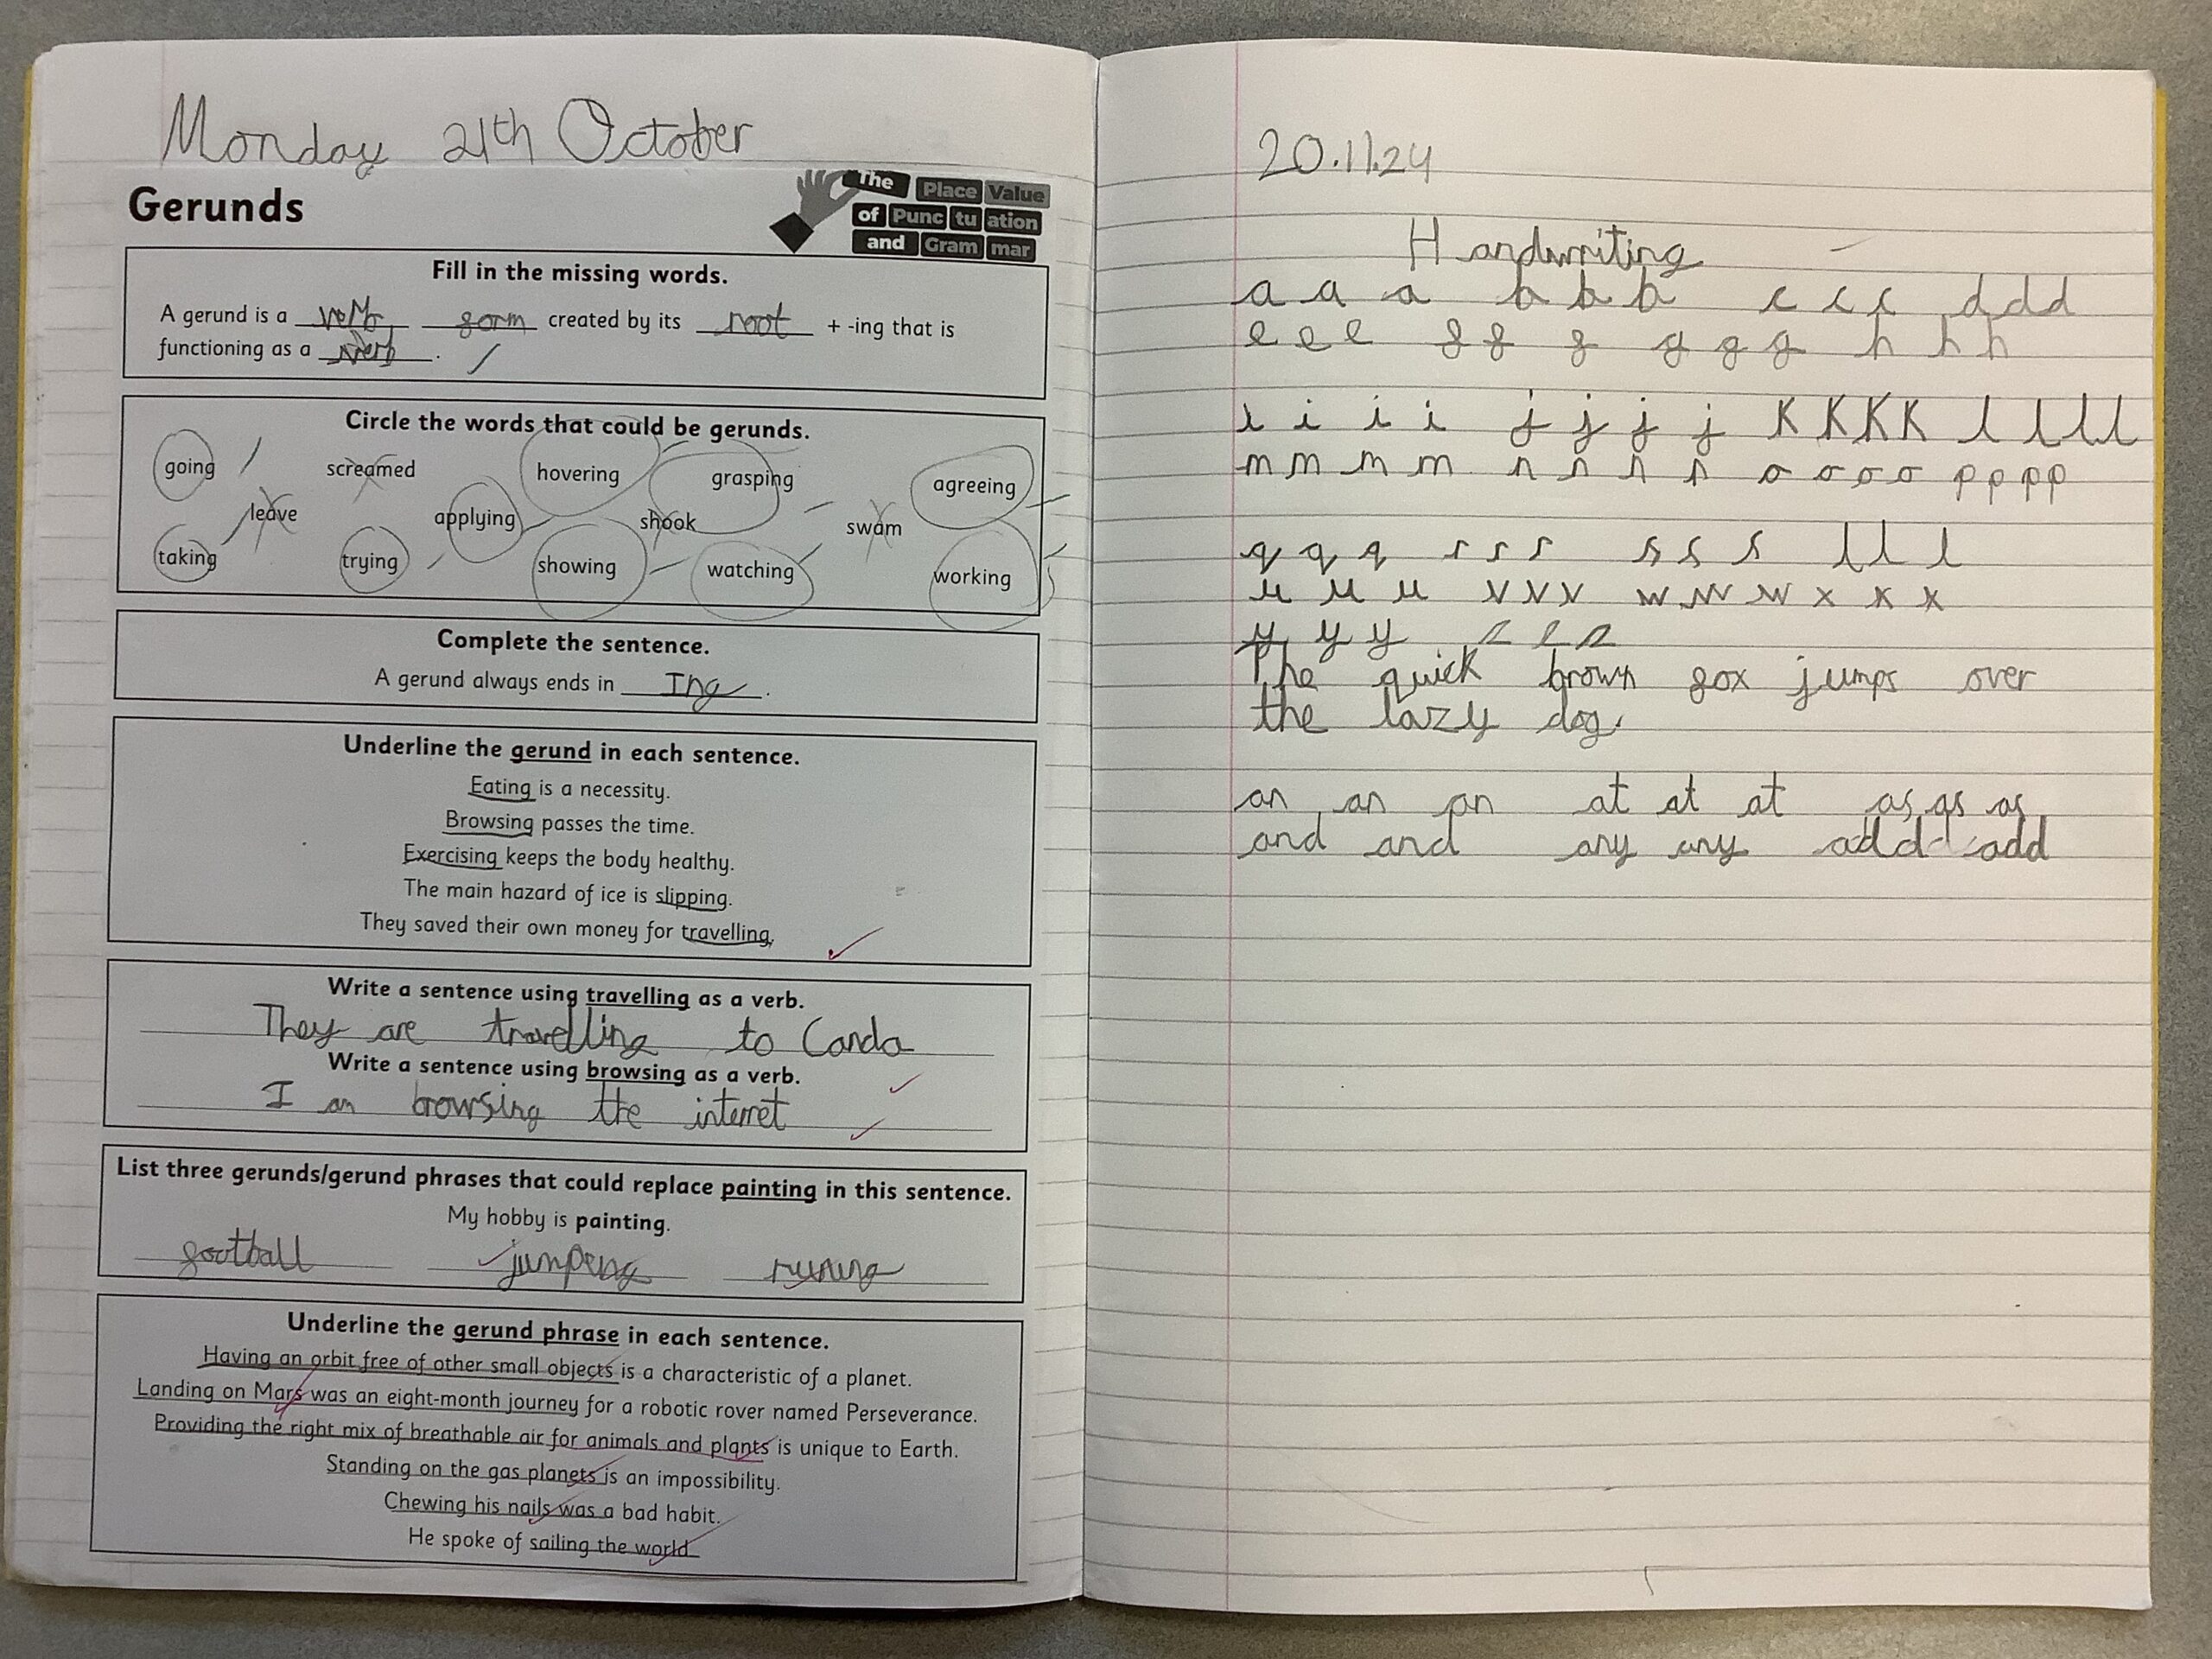 Monday 21th October
Gerunds
The Place Value
of Punc tu ation
and Gram mar
Fill in the missing words.
A gerund is a verb form created by its root + -ing that is
functioning as a .
Circle the words that could be gerunds.
going screamed hovering grasping agreeing
leave applying shook swam
taking trying showing watching working
Complete the sentence.
A gerund always ends in Ing.
Underline the gerund in each sentence.
Eating is a necessity.
Browsing passes the time.
Exercising keeps the body healthy.
The main hazard of ice is slipping.
They saved their own money for travelling.
Write a sentence using travelling as a verb.
They are travelling to Canda
Write a sentence using browsing as a verb.
I am browsing the internet
List three gerunds/gerund phrases that could replace painting in this sentence.
My hobby is painting.
football jumpeng runing
Underline the gerund phrase in each sentence.
Having an orbit free of other small objects is a characteristic of a planet.
Landing on Mars was an eight-month journey for a robotic rover named Perseverance.
Providing the right mix of breathable air for animals and plants is unique to Earth.
Standing on the gas planets is an impossibility.
Chewing his nails was a bad habit.
He spoke of sailing the world.
20.11.24
Handwriting
a a a b b b c c c d d d
e e e f f f g g g h h h
i i i i j j j j K K K K l l l l
m m m m n n n n o o o o p p p p
q q q r r r s s s l l l
u u u v v v w w w x x x
y y y z z z
The quick brown fox jumps over
the lazy dog.
an an an at at at as as as
and and any any add add